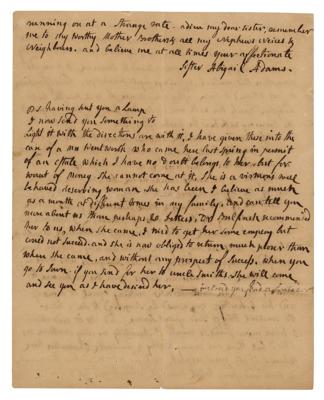 running on at a strange rate - adieu my dear sister, remember
me to my Worthy Mother Brothers & all my Nephews Nieces &
Neighbours. and believe me at all times your affectionate
Sister Abigail Adams.
P.S. having sent you a Lamp
I now send you something to
light it with the directions are with it, I have given these into the
care of a mrs wentworth who came here last spring in persuit
of an estate which I have no doubt belongs to her, but for
want of money she cannot come at it, She is a virtuous well
behaved deserving woman she has been I believe as much
as a month at different times in my family, and can tell you
more about us than perhaps 20 Letters, Dr Bulfinch recommended
her to us, when she came, I tried to get her some employ but
could not succeed. and she is now obliged to return much poorer than
when she came, and without any prospect of success, when you
go to Town. if you send for her to uncle Smiths. She will come
and see you as I have desired her,